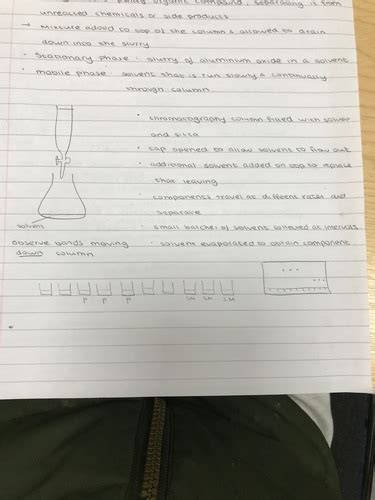 organic compound, separating is from
unreacted chemicals or side products
→ Mixture added to top of the column & allowed to drain
down into the slurry
· Stationary phase : slurry of aluminium oxide in a solvent
· mobile phase solvent that is run slowly & continually
through column
· chromatography column filled with solvent
and silica
· tap opened to allow solvent to flow out
· additional solvent added on top to replace
that leaving
· components travel at different rates and
separate
solvent · small batches of solvent collected at intervals
observe bands moving · solvent evaporated to obtain component
down column
P P P SM SM SM